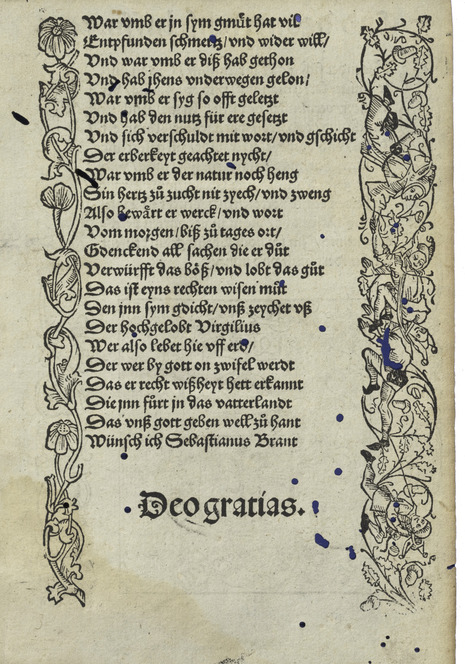 War vmb er jn sym gmuͤt hat vil
Entpfunden schmertz/vnd wider will/
Vnd war vmb er diß hab gethon
Vnd hab jhens vnderwegen gelon/
War vmb er syg so offt geletzt
Vnd hab den nutz für ere gesetzt
Vnd sich verschuldt mit wort/vnd gschicht
Der erberkeyt geachtet nycht/
War vmb er der natur noch heng
Sin hertz zuͦ zucht nit zyech/vnd zweng
Also bewaͤrt er werck/vnd wort
Vom morgen/biß zuͦ tages ort/
Gdenckend all sachen die er duͤt
Verwürfft das boͤß/vnd lobt das guͦt
Das ist eyns rechten wisen muͦt
Den jnn sym gdicht/vnß zeychet vß
Der hochgelobt Virgilius
Wer also lebet hie vff erd/
Der wer by gott on zwifel werdt
Das er recht wißheyt hett erkannt
Die jnn fürt jn das vatterlandt
Das vnß gott geben well zuͦ hant
Wünsch ich Sebastianus Brant
Deo gratias.